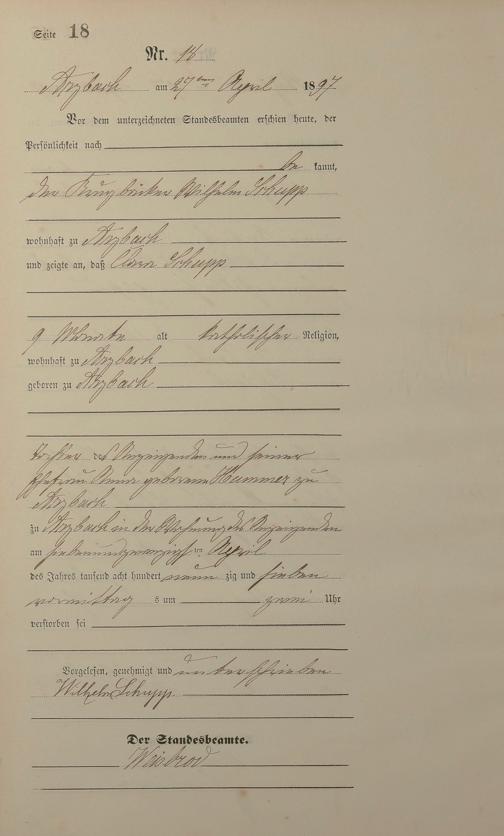 Seite 18
Nr. 18
Arzbach am 27ten April 1897
Vor dem unterzeichneten Standesbeamten erschien heute, der
Persönlichkeit nach
be kannt,
der Krugbäcker Wilhelm Schupp
wohnhaft zu Arzbach
und zeigte an, daß Clara Schupp
9 Monate alt katholischer Religion,
wohnhaft zu Arzbach
geboren zu Arzbach
Tochter des Anzeigenden und seiner
Ehefrau Anna geborene Hammer zu
Arzbach
zu Arzbach in der Wohnung des Anzeigenden
am siebenundzwanzigsten April
des Jahres tausend acht hundert neun zig und sieben
vormittag s um zwei Uhr
verstorben sei
Vorgelesen, genehmigt und unterschrieben
Wilhelm Schupp
Der Standesbeamte.
Weisbrod